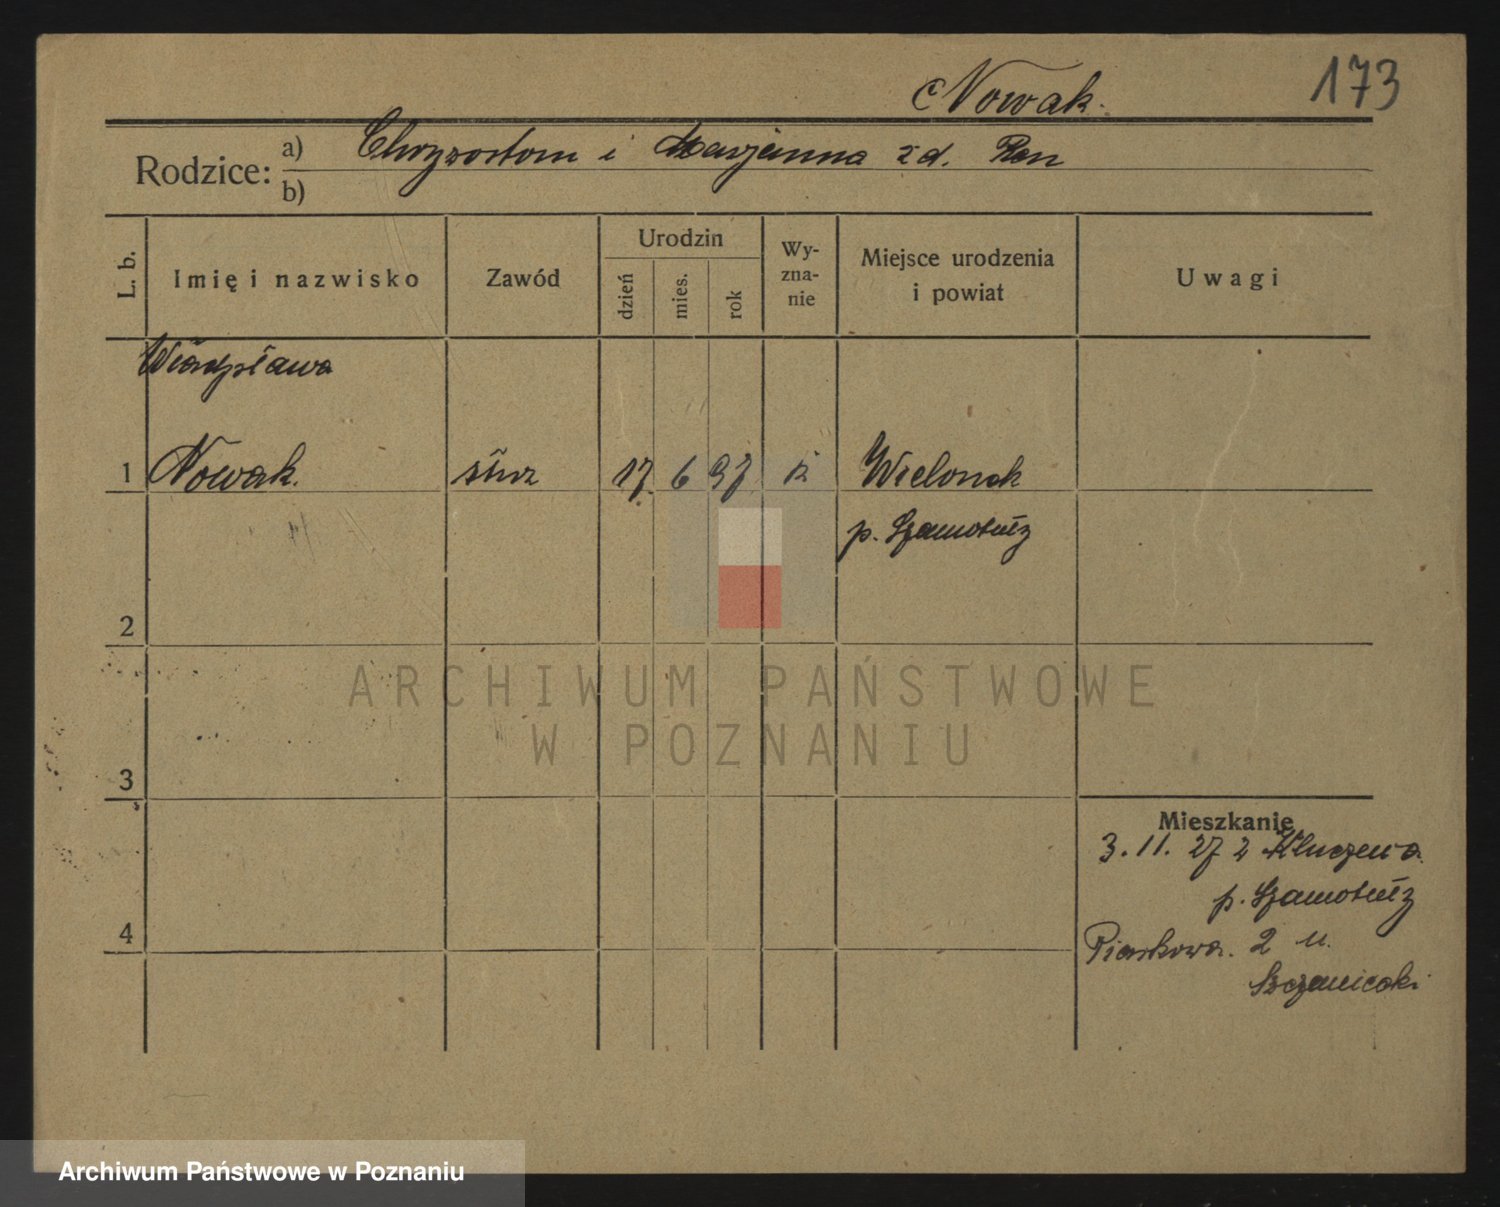 Nowak.
173
Rodzice: a) Chryzostom i Marjanna zd. Ren
b)
L. b.
Imię i nazwisko
Zawód
Urodzin
dzień
mies.
rok
Wy-
zna-
nie
Miejsce urodzenia
i powiat
Uwagi
Władysława
1 Nowak. służ 17. 6 97 k Wielonek
p. Szamotuły
2
3
4
Mieszkanie
3.11.27 z Kluczewa
p. Szamotuły
Piaskowa. 2 u.
ARCHIWUM PAŃSTWOWE
W POZNANIU
Archiwum Państwowe w Poznaniu